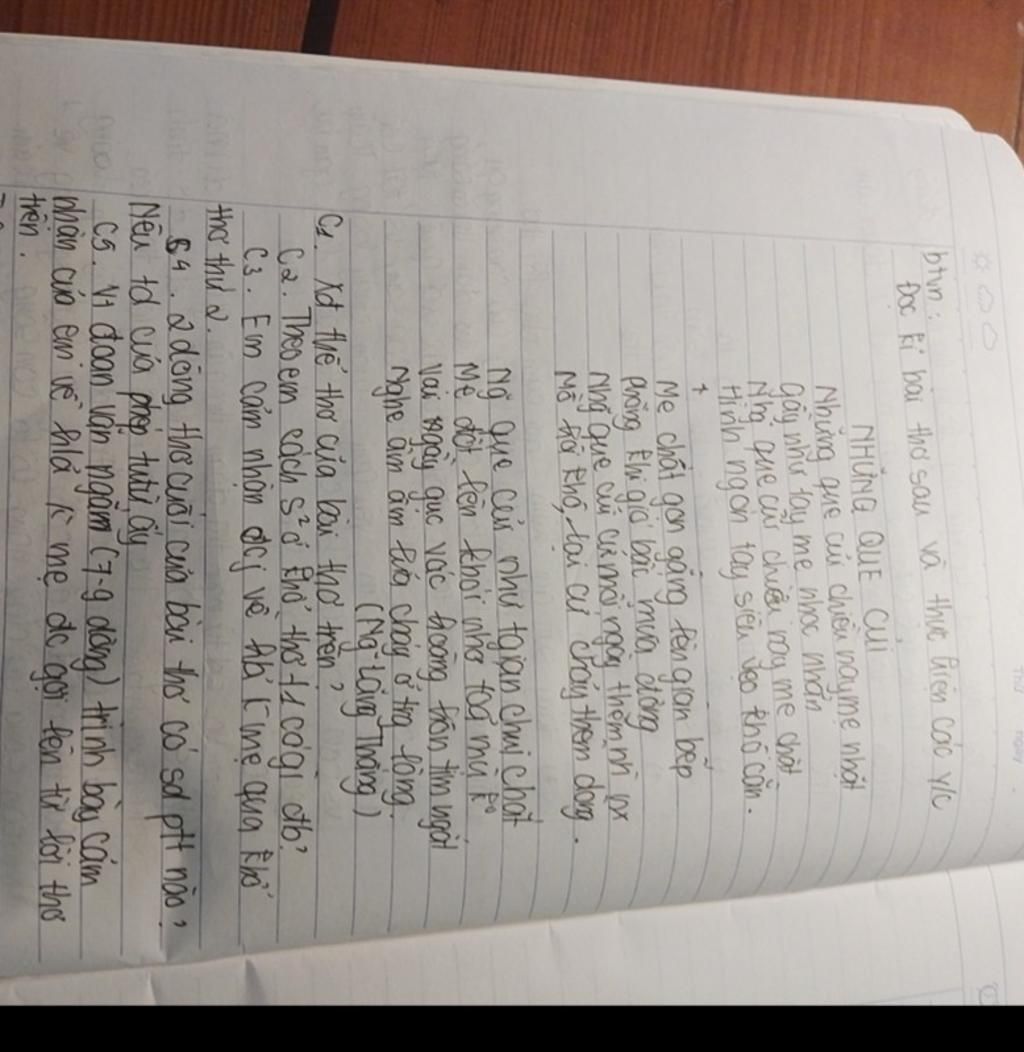 btvn:
Đọc kĩ bài thơ sau và thực hiện các y/c
NHỮNG QUE CỦI
Những que củi chiều nay mẹ nhặt
Gầy như tay mẹ nhọc nhằn
Nhg que củi chiều nay mẹ chặt
Hình ngón tay siêu vẹo khô cằn.
+
Mẹ chất gọn gàng lên gian bếp
phòng khi gió bấc mưa dông
Nhg que củi cứ mỗi ngày thêm
Mồ hôi khô, lại cứ cháy thêm dòng.
Ng que củi như tự gian chui chặt
Mẹ đốt lên khói nhơ toả mịt
Vai ngày gục vác hoàng hôn tím ngắt
Nghe âm ấm lửa cháy ở tra lòng.
(Ng-Lãng Thắng)
C1. Xđ thể thơ của bài thơ trên,
C2. Theo em cách s² ở khổ thơ t1 có gì đb,
C3. Em cảm nhận đc j về h/á ng mẹ qua khổ
thơ thứ 2.
C4. 2 dòng thơ cuối của bài thơ có sd ptt nào,
Nêu td của phép tu từ ấy
C5. V1 đoạn văn ngắm (7-9 dòng) trình bày cảm
nhận của em về h/á ng mẹ đc gợi lên từ lời thơ
trên.